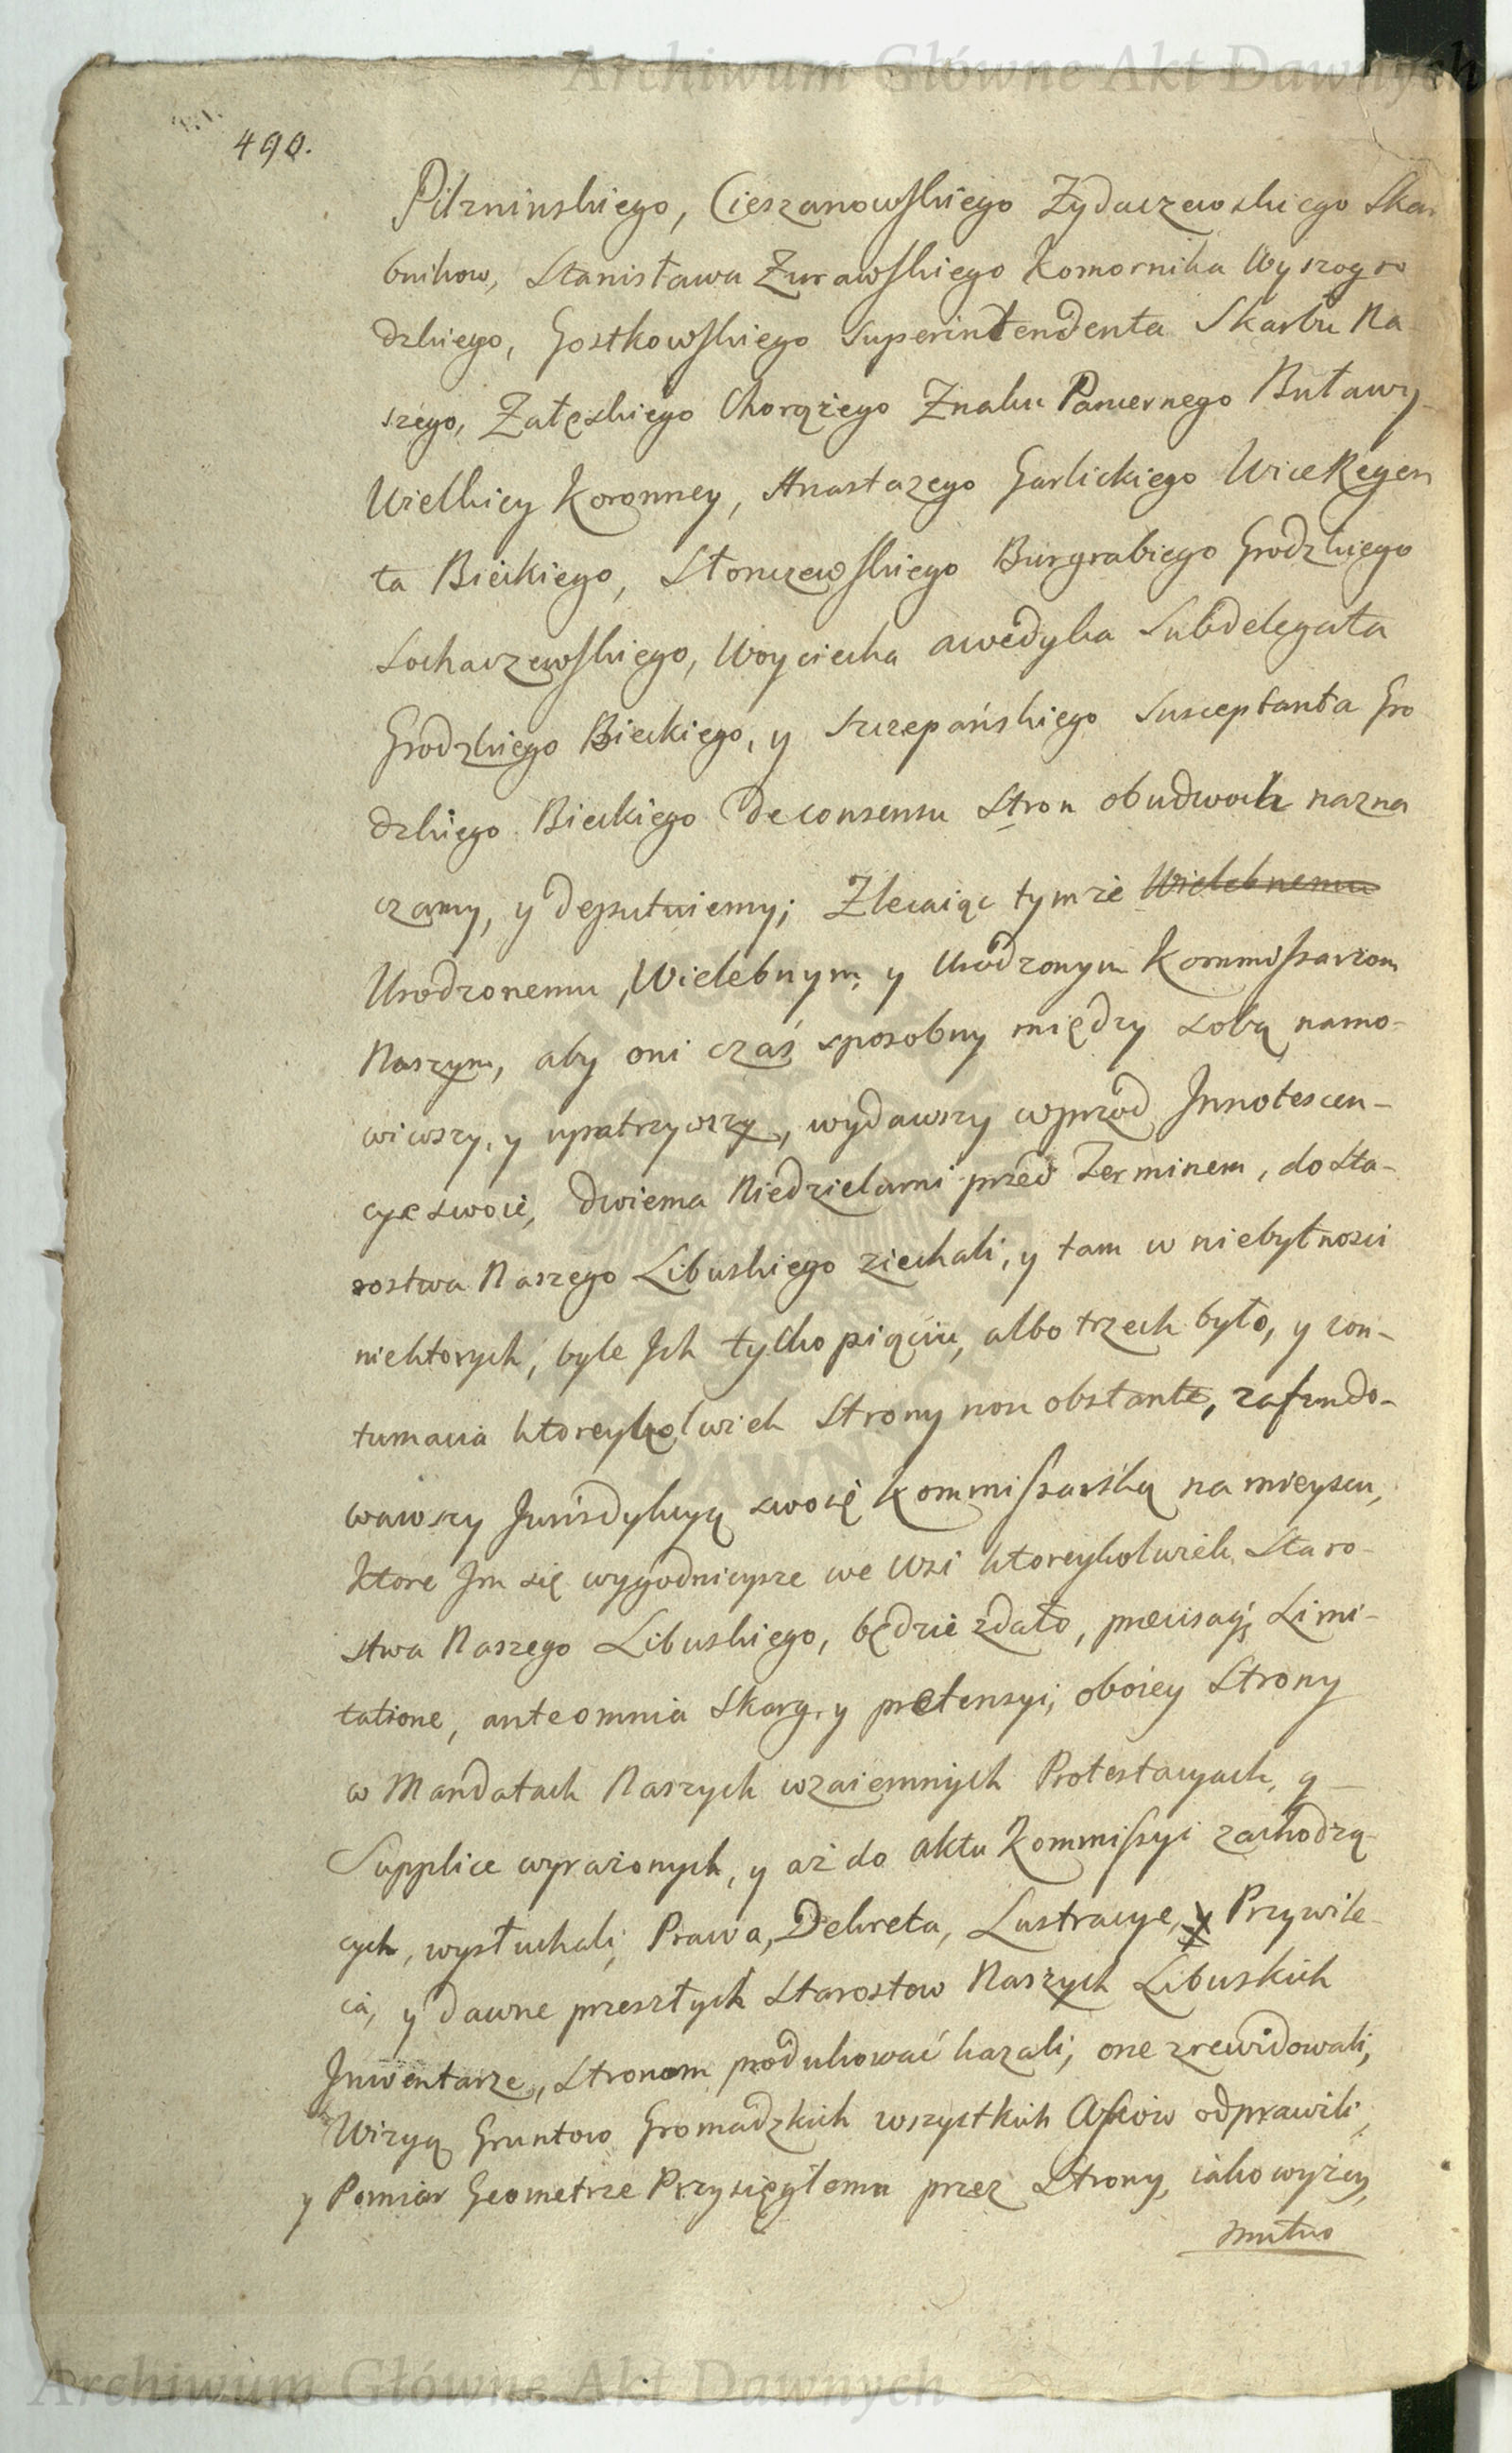 Archiwum Główne Akt Dawnych
490.
Pilzninskiego, Cieszanowskiego Zydaczewskiego Skar
bnikow, Stanisława Zurawskiego Komornika Wyszogro
dzkiego, Gostkowskiego Superintendenta Skarbu Na
szego, Załęskiego Chorążego Znaku Pancernego Buławy
Wielkiey Koronney, Anastazego Garlickiego ViceRegen
ta Bieckiego, Słonczewskiego Burgrabiego Grodzkiego
Sochaczewskiego, Woyciecha Subdelegata
Grodzkiego Bieckiego, y Szczepańskiego Susceptanta Gro
dzkiego Bieckiego de consensu Stron obudwoch nazna
czamy, y deputuiemy; Zlecaiąc tymże Wielebnemu
Urodzonemu, Wielebnym, y Urodzonym Kommissarzom
Naszym, aby oni czas sposobny między sobą namo-
wiwszy, y upatrzywszy, wydawszy wprzod Innotescen-
cye swoie, dwiema Niedzielami przed Terminem, do Sta-
rostwa Naszego Libuskiego ziechali, y tam w niebytnosci
niektorych, byle Ich tylko piąciu, albo trzech było, y con-
tumacia ktoreykolwiek Strony non obstante, zafundo-
wawszy Jurisdykcyą swoię Kommissarską na mieyscu,
ktore Im się wygodnieysze we Wsi ktoreykolwiek Staro-
stwa Naszego Libuskiego, będzie zdało, praecisâq; Limi-
tatione, ante omnia Skarg, y pretensyi, oboiey Strony
w Mandatach Naszych wzaiemnych Protestacyach, y
Supplice wyrażonych, y aż do aktu Kommissyi zachodzą
cych, wysłuchali, Prawa, Dekreta, Lustracye, y Przywile
ia, y dawne przeszłych Starostow Naszych Libuskich
Inwentarze, Stronom produkować kazali; one zrewidowali,
Wizyą Gruntow Gromadzkich wszystkich Wsiow odprawili,
y Pomiar Geometrze Przysięgłemu przez Strony, iako wyżey,
mutuo
Archiwum Główne Akt Dawnych